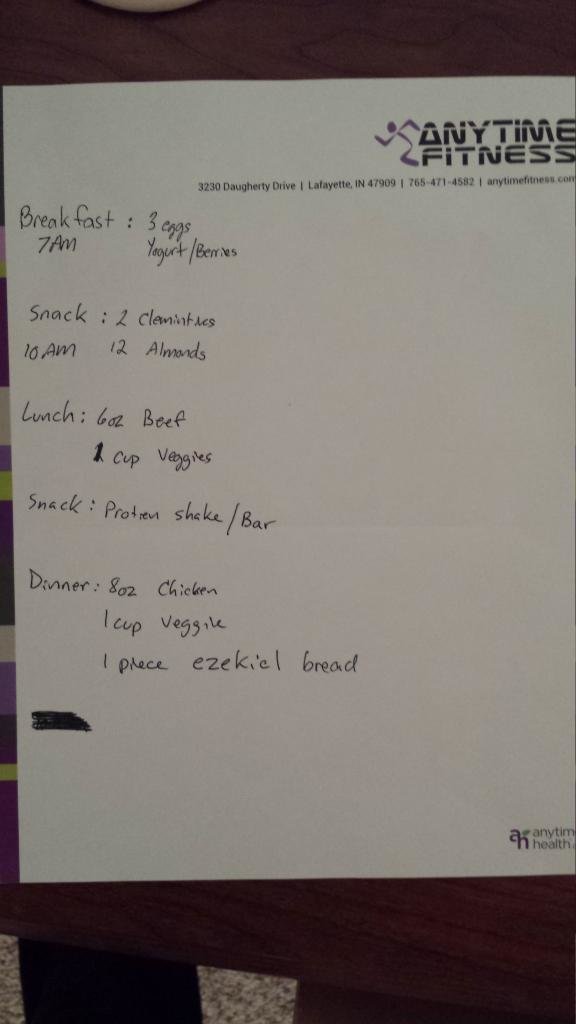 ANYTIME
FITNESS
3230 Daugherty Drive | Lafayette, IN 47909 | 765-471-4582 | anytimefitness.com
Breakfast : 3 eggs
7AM Yogurt/Berries
Snack : 2 Clemintines
10AM 12 Almonds
Lunch: 6oz Beef
1 cup Veggies
Snack: Protien shake/Bar
Dinner: 8oz Chicken
1 cup Veggie
1 piece ezekiel bread
ah anytim
health